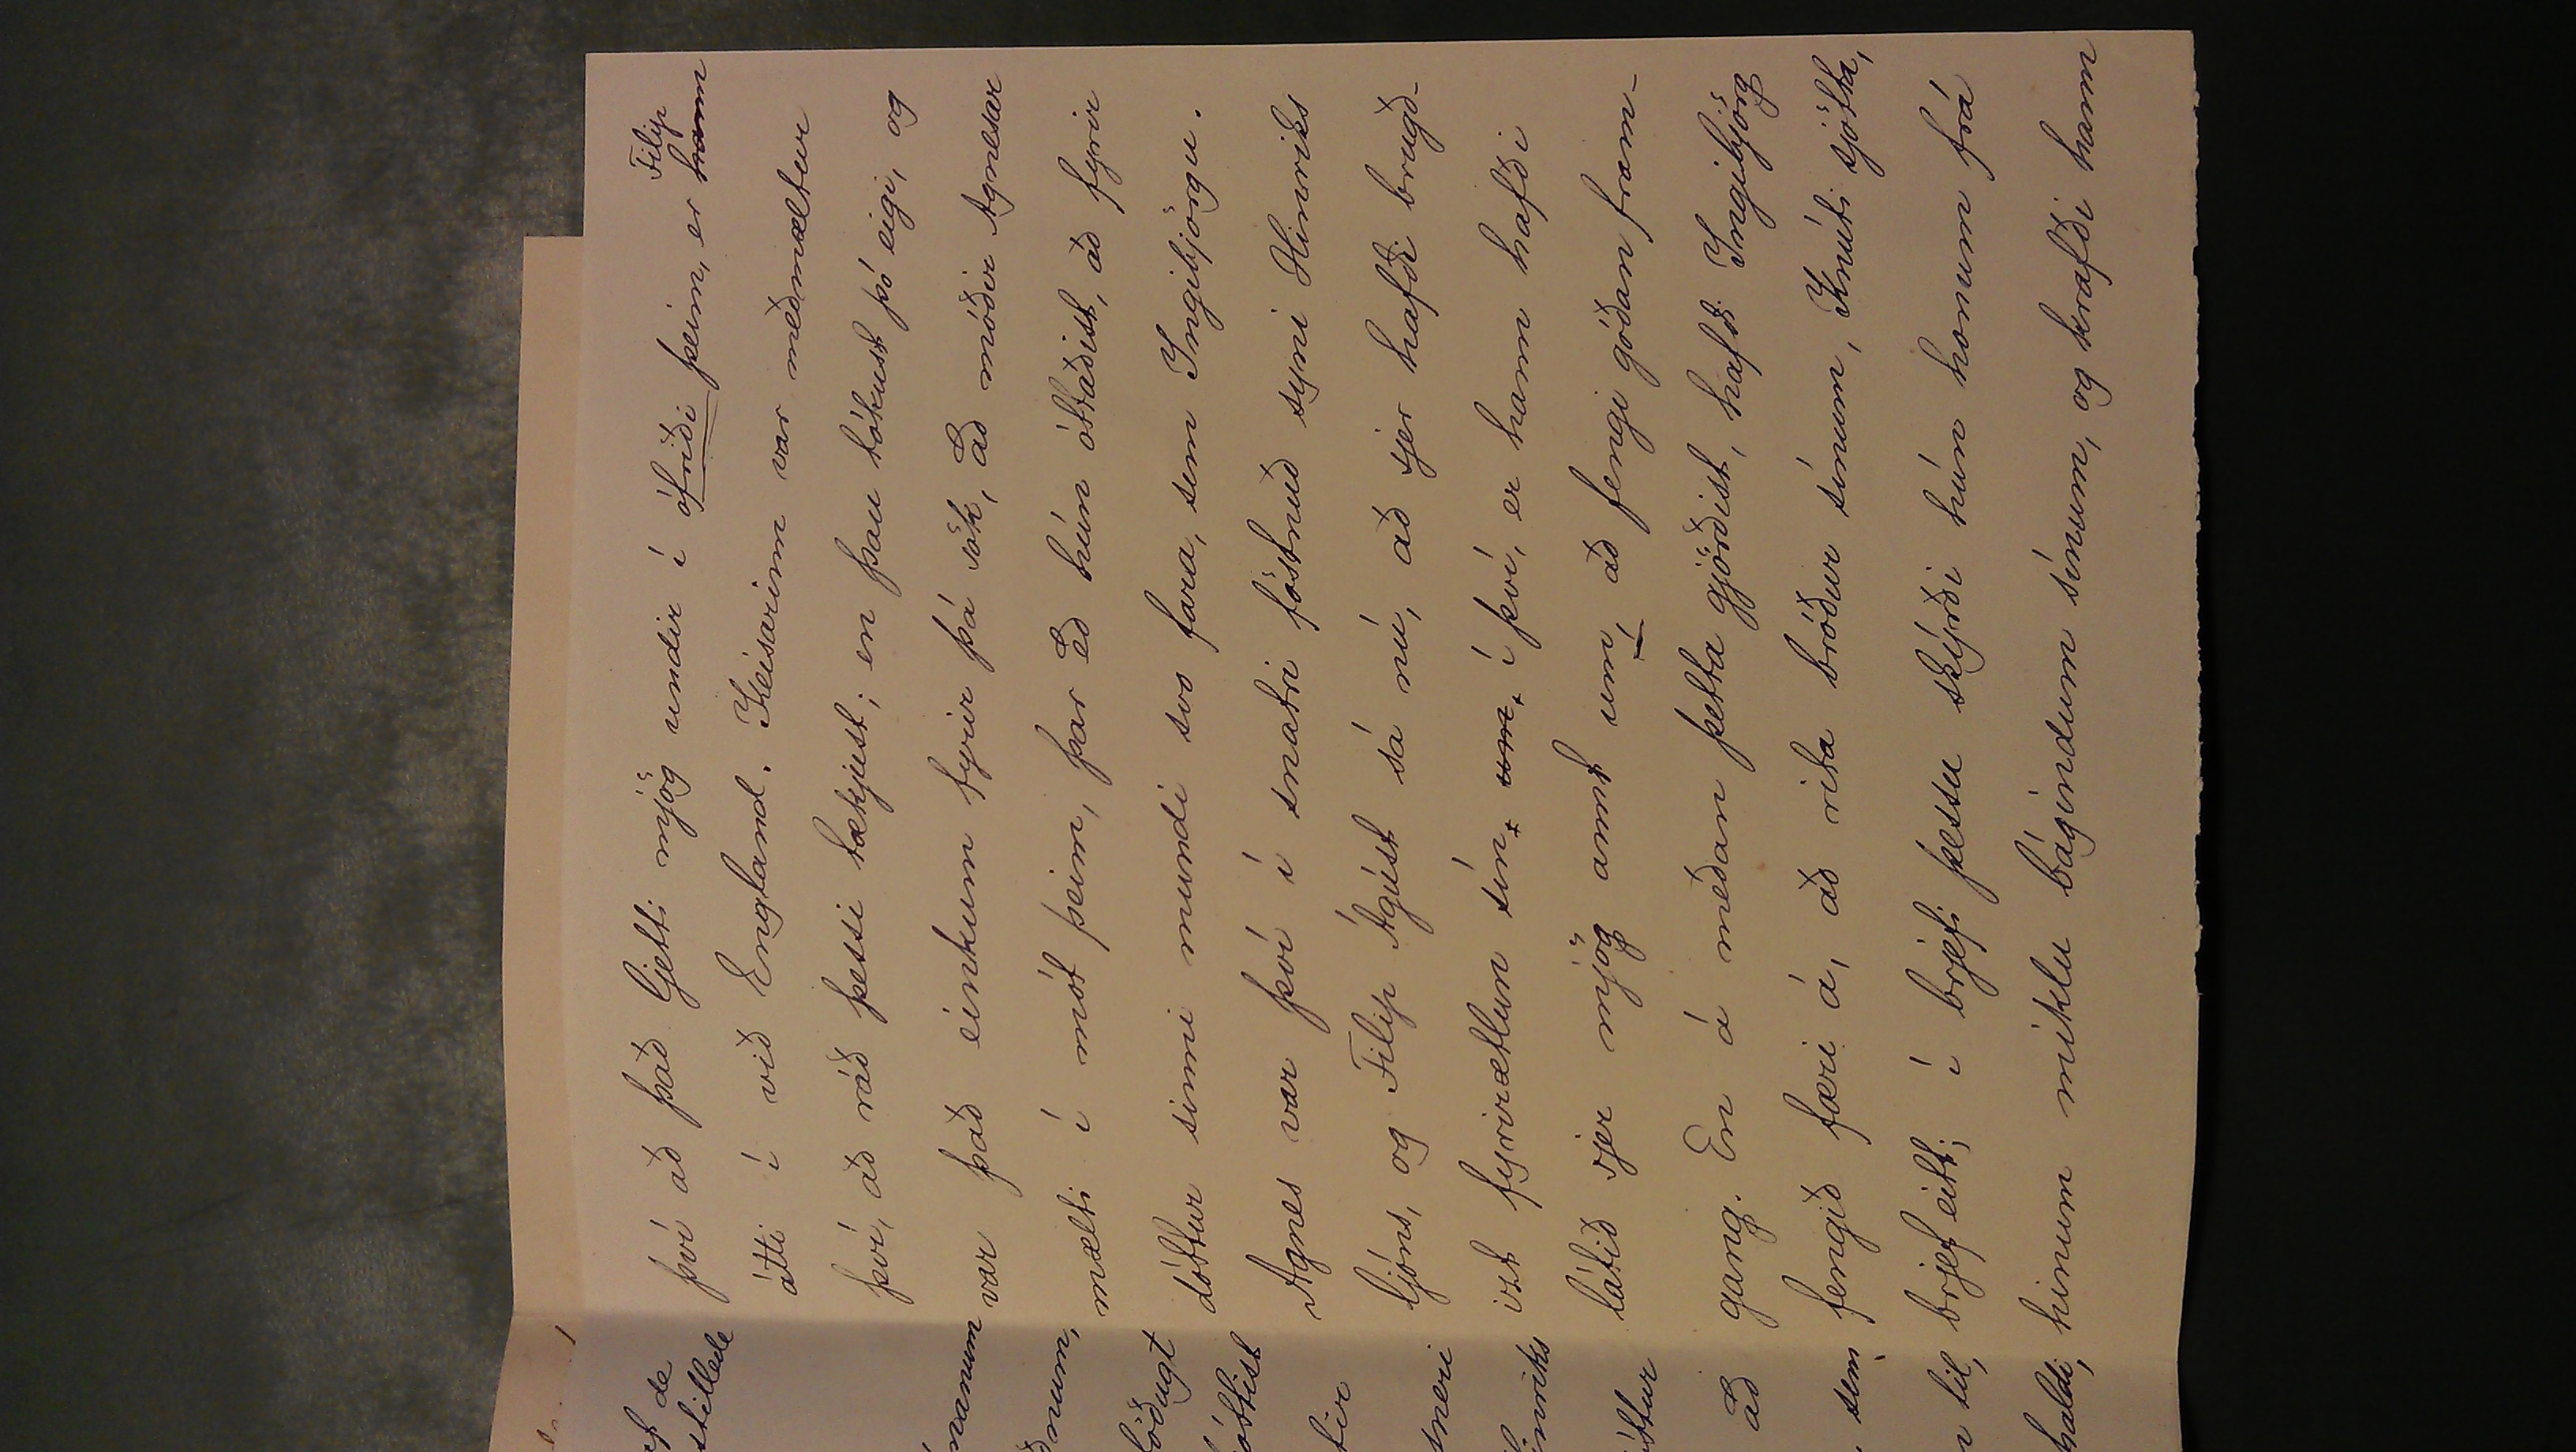 því að það ljetti mjög undir í ófriði þeim, er Filip hann
átti í við England. Keisarinn var meðmæltur
því, að ráð þessi tækjust; en þau tókust þó eigi, og
var það einkum fyrir þá sök, að móðir Agnesar
mælti í mót þeim, þar eð hún óttaðist, að fyrir
dóttur sinni mundi svo fara, sem Ingibjörgu.
Agnes var því í snatri föstnuð syni Hinriks
ljóns, og Filip Ágúst sá nú, að sjer hafði brugð-
ist fyrirætlun sín um í því, er hann hafði
látið sjer mjög annt um að fengi góðan fram-
gang. En á meðan þetta gjörðist, hafði Ingibjörg
fengið færi á, að rita bróður sínum, Knúti sjötta,
brjef eitt; í brjefi þessu skýrði hún honum frá
hinum miklu bágindum sínum, og krafði hann
de
stillede
manum
num,
óttist
sneri
inriks
að
sem
til,
haldi;